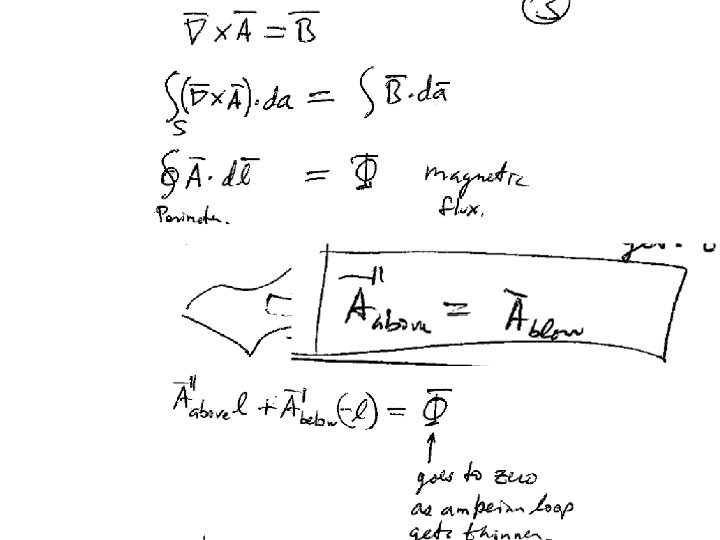 ③
∇̄ × Ā = B̄
∫_S (∇̄ × Ā) · da = ∫ B̄ · dā
∮ Ā · dl̄ = Φ̄ magnetic
Perimeter. flux.
Ā∥above = Āblow
Ā∥above l + Ā∥below (-l) = Φ̄
↑
goes to zero
as amperian loop
gets thinner.